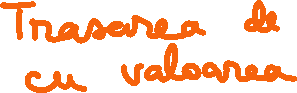 Trasarea de
cu valoarea